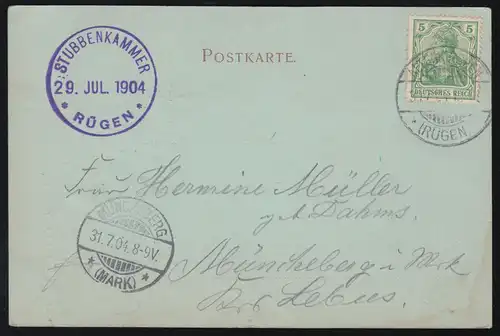 STUBBENKAMMER
29. JUL. 1904
* RÜGEN *
POSTKARTE.
5 5
DEUTSCHES REICH
(RÜGEN
Frau Hermine Müller
geb. Dahms.
MÜNCHEBERG
31.7.04. 8-9V.
* (MARK) *
Müncheberg i Mrk
Krs Lebus.